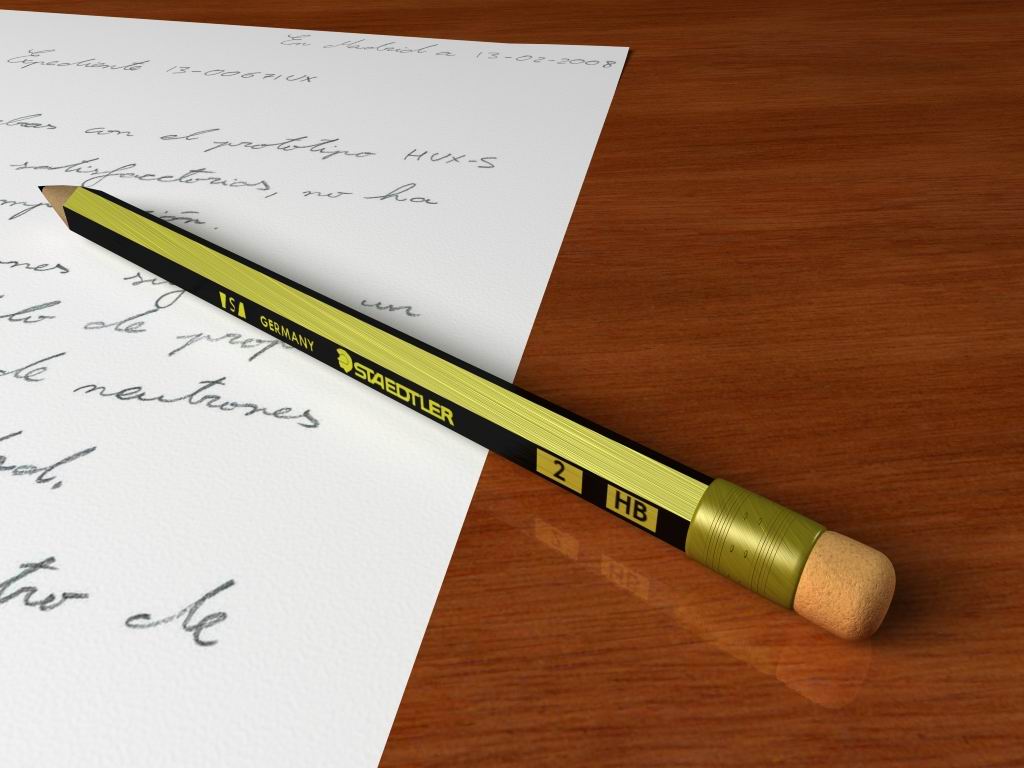 En Madrid a 13-02-2008
Expediente 13-00671UX
bas con el prototipo HUX-S
satisfactorias, no ha
ión.
nes sig un
lo de prop
de neutrones
tro de
VSA GERMANY STAEDTLER 2 HB